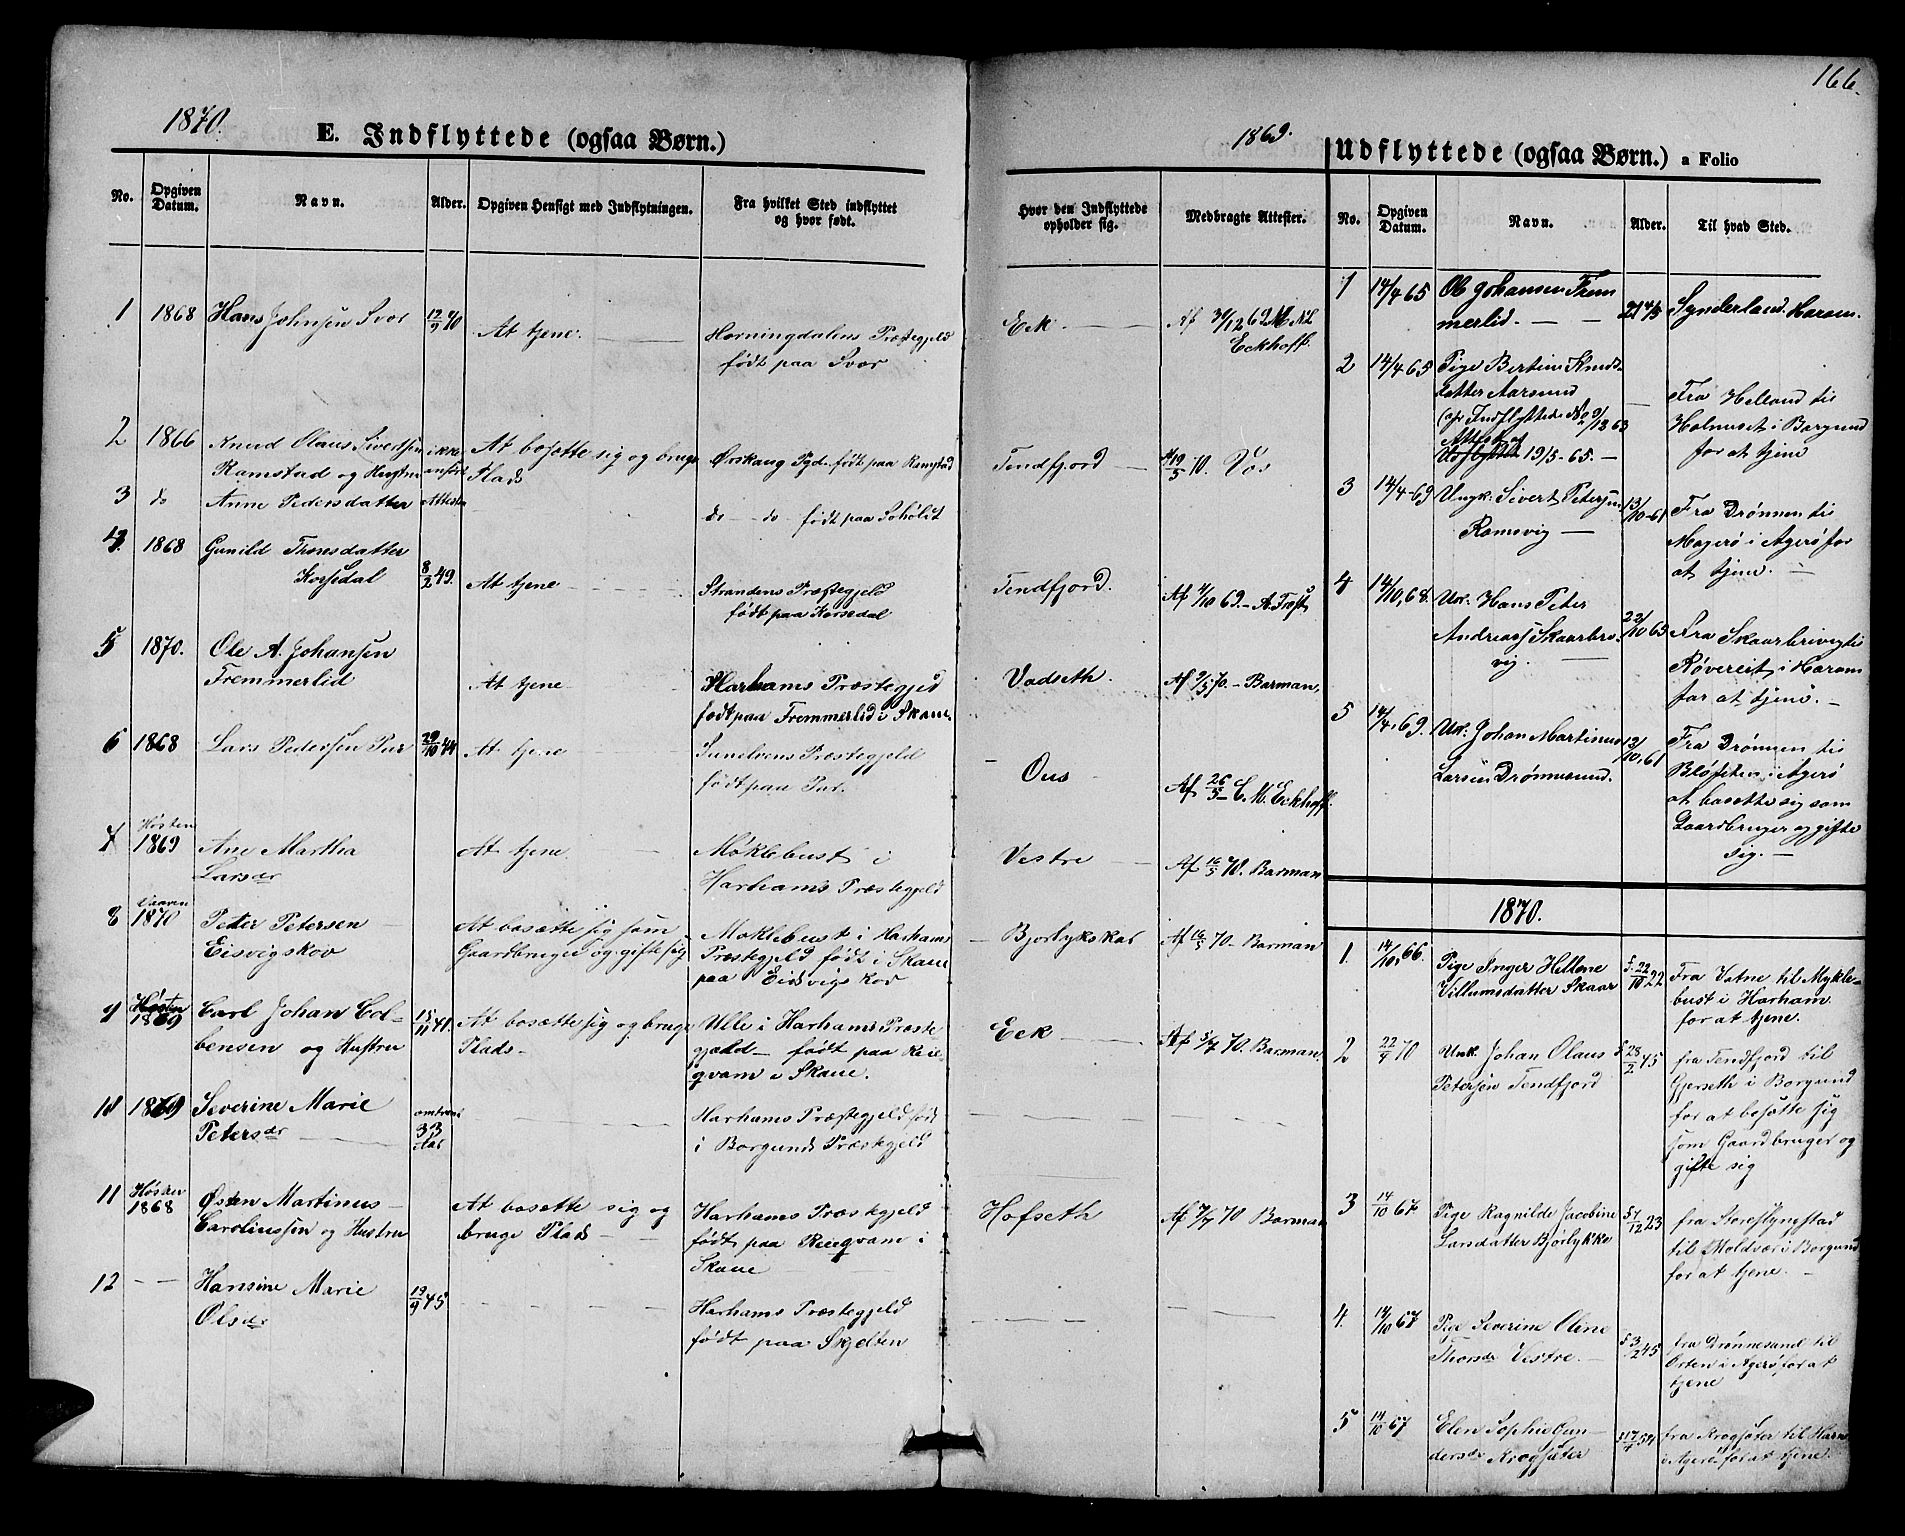 1870.
E. Indflyttede (ogsaa Børn.)
No.
Opgiven Datum.
Navn.
Alder.
Opgiven Hensigt med Indflytningen.
Fra hvilket Sted indflyttet og hvor født.
Hvor den Indflyttede opholder sig.
Medbragte Attester.
1 1868 Hans Johnsen Svor 12/9 40 At tjene. Horningdalens Præstegjeld Eek Af 30/12 69
født paa Svor Eckhoff.
2 1866 Knud Olaus Sivertsen ikke At bosætte sig og bruge Ørskaug født paa Ramstad Tendfjord 70. Vos
Ramstad og Hustru anført Plads
3 do Anne Pedersdatter Attesten do do født paa Søholt
4. 1868 Gunild Tronsdatter 8/2 49. At tjene Strandens Præstegjeld Tendfjord. Af 4/10 69.
Korsedal født paa Korsedal
5 1870. Ole A. Johansen At tjene Harhams Præstegjeld Vadseth. Af 9/5 70. Barman,
Fremmerlid født paa Fremmerlid i Skaue.
6 1868 Lars Pedersen 29/10 44 At tjene Sunelvens Præstegjeld Ous Af 26/5 C. M. Eckhoff.
født paa
7 Høsten
1869 Ane Martha At tjene. Møklebust i Vestre Af 16/5 70. Barman
Larsdr Harhams Præstegjeld
8 Vaaren
1870 Peter Petersen At bosætte sig som Moklebust i Harhams Bjorlykskar Af 16/5 70 Barman
Eisvigskov Gaardbruger og gifte sig Præstegjeld født i Skaue
paa Eidsvigs kov
9 Høsten
1869 Carl Johan Col- 15/11 41. At bosætte sig og bruge Ulle i Harhams Præste Eek Af 5/7 70. Barman,
bensen og Hustru Plads gjæld født paa
qvam i Skaue.
10 1869 Severine Marie omtrent Harhams Præstegjeld født
Petersdr 33 Aar i Borgunds Præstegjeld
11 Høsten
1868 Østen Martinus At bosætte sig og Harhams Præstegjeld Hofseth Af 7/7 70 Barman
Caroliussen og Hustru bruge Plads født paa i
Skaue
12 Hansine Marie 19/9 45 Harhams Præstegjeld
Olsdr født paa Skjelten
166.
1869.
Udflyttede (ogsaa Børn.) a Folio
No.
Opgiven Datum.
Navn.
Alder.
Til hvad Sted.
1 14/4 65 Ole Johansen Frem Synderland Haram.
merlid.
2 14/4 65 Pige Bertine Knuds
datter Aarsund Fra Helland til
Indflyttede No 2 Holmeset i Borgund
Attest af for at tjene
19/5-65.
3 14/4-69 Ungk. Sivert Petersen 13/10-61 Fra Drønnen til
Ramsvig Magerø i Agerø for
at tjene.
4 14/10, 68. Uk. Hans Peter 22/10 65 Fra Skaarbrivig til
Andreas Skaarbre Røvereit i Haram
vig. for at tjene.
5 14/4, 69. Uk: Johan Martinus 13/10, 61 Fra Drønnen til
Larsen Drønnesund. i Agerø
at bosætte sig som
Gaardbruger og gifte
sig.
1870.
1. 14/10, 66 Pige Inger Hellene f. 22/10 22 Fra Vatne til Mykle-
Villumsdatter Skaar bust i Harham.
for at tjene.
2 22/9 70 Unk. Johan Olaus f 28/2 45 fra Tendfjord til
Petersen Tendfjord Gjerseth i Borgund
for at bosætte sig
som Gaardbruger og
gifte sig
3 14/10 67 Pige Ragnilde Jacobine f 7/12 23 fra
Larsdatter Bjørlykke til Moldvær i Borgund
for at tjene.
4. 14/10 67 Pige Severine Oline f 3/2 45 fra Drønnesund til
Thorsdr Vestre. Orten i Agerø for at
tjene
5 14/10 67 Elen Sophie Gun- fra Krogsæter til
dersdr Krogsæter i Agerø for at tjene.